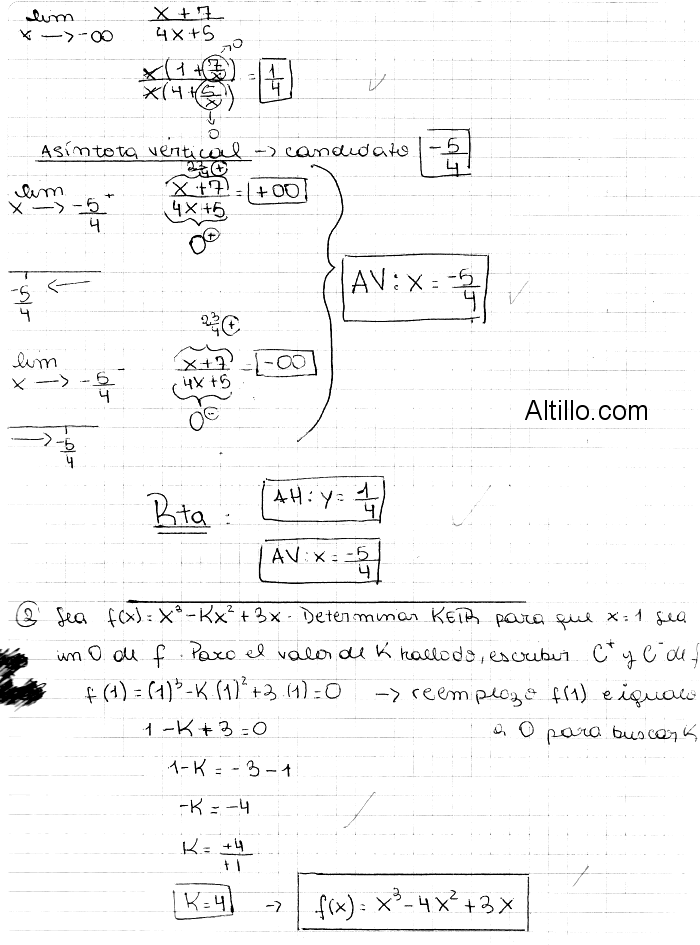 lim x → -∞ x+7 / 4x+5
x(1 + 7/x) / x(4 + 5/x) = 1/4
0
0
Asíntota vertical → candidato -5/4
23/4 +
lim x → -5/4⁺ x+7 / 4x+5 = +∞
0⁺
-5/4 ←
AV: x = -5/4
23/4 +
lim x → -5/4⁻ x+7 / 4x+5 = -∞
0⁻
→ -5/4
Altillo.com
Rta: AH: y = 1/4
AV: x = -5/4
② Sea f(x) = x³ - Kx² + 3x. Determinar K∈ℝ para que x=1 sea
un 0 de f. Para el valor de K hallado, escribir C⁺ y C⁻ de f
f(1) = (1)³ - K.(1)² + 3.(1) = 0 → reemplazo f(1) e igualo
1 - K + 3 = 0 a 0 para buscar K
1-K = -3-1
-K = -4
K = +4/+1
K=4 → f(x) = x³ - 4x² + 3x